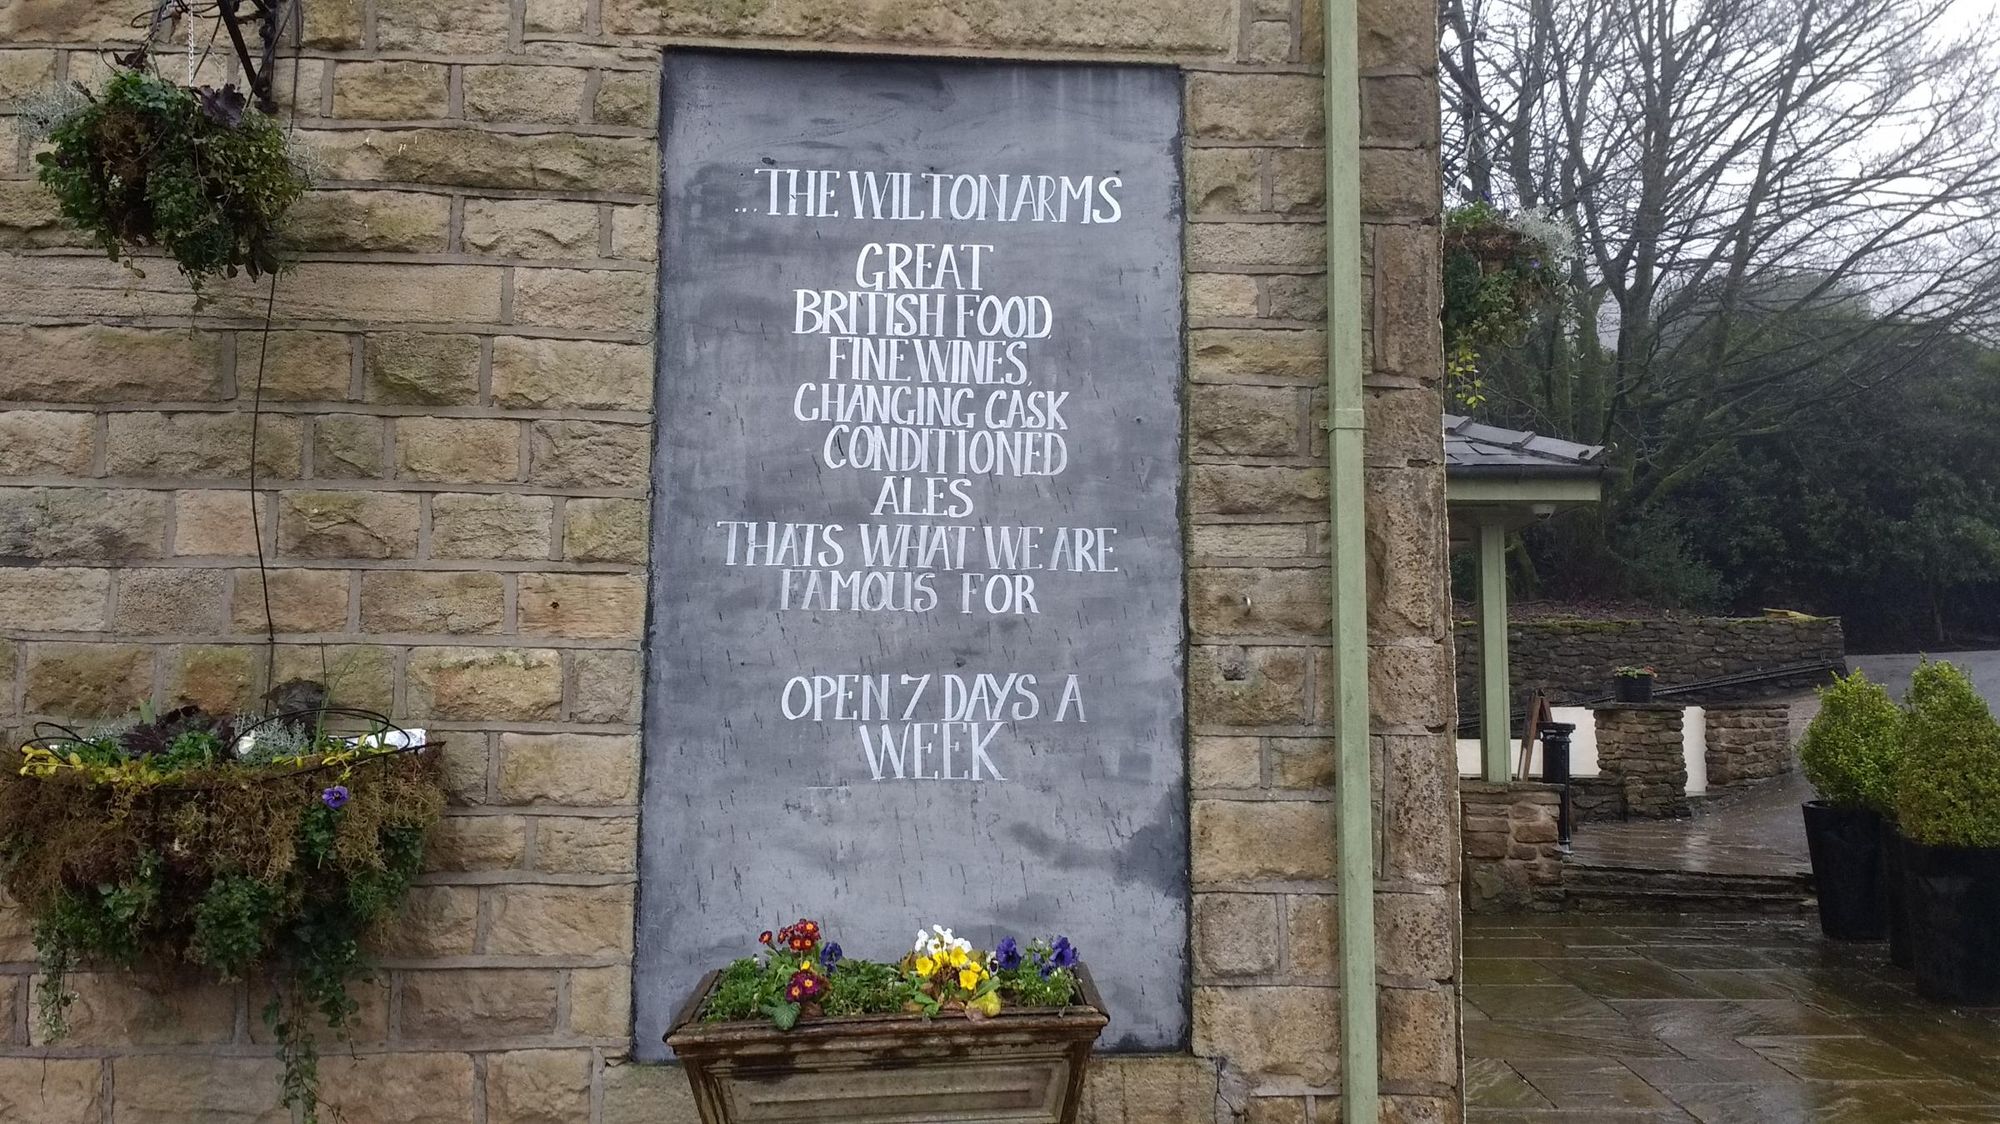 ...THE WILTON ARMS
GREAT
BRITISH FOOD,
FINE WINES,
CHANGING CASK
CONDITIONED
ALES
THATS WHAT WE ARE
FAMOUS FOR
OPEN 7 DAYS A
WEEK